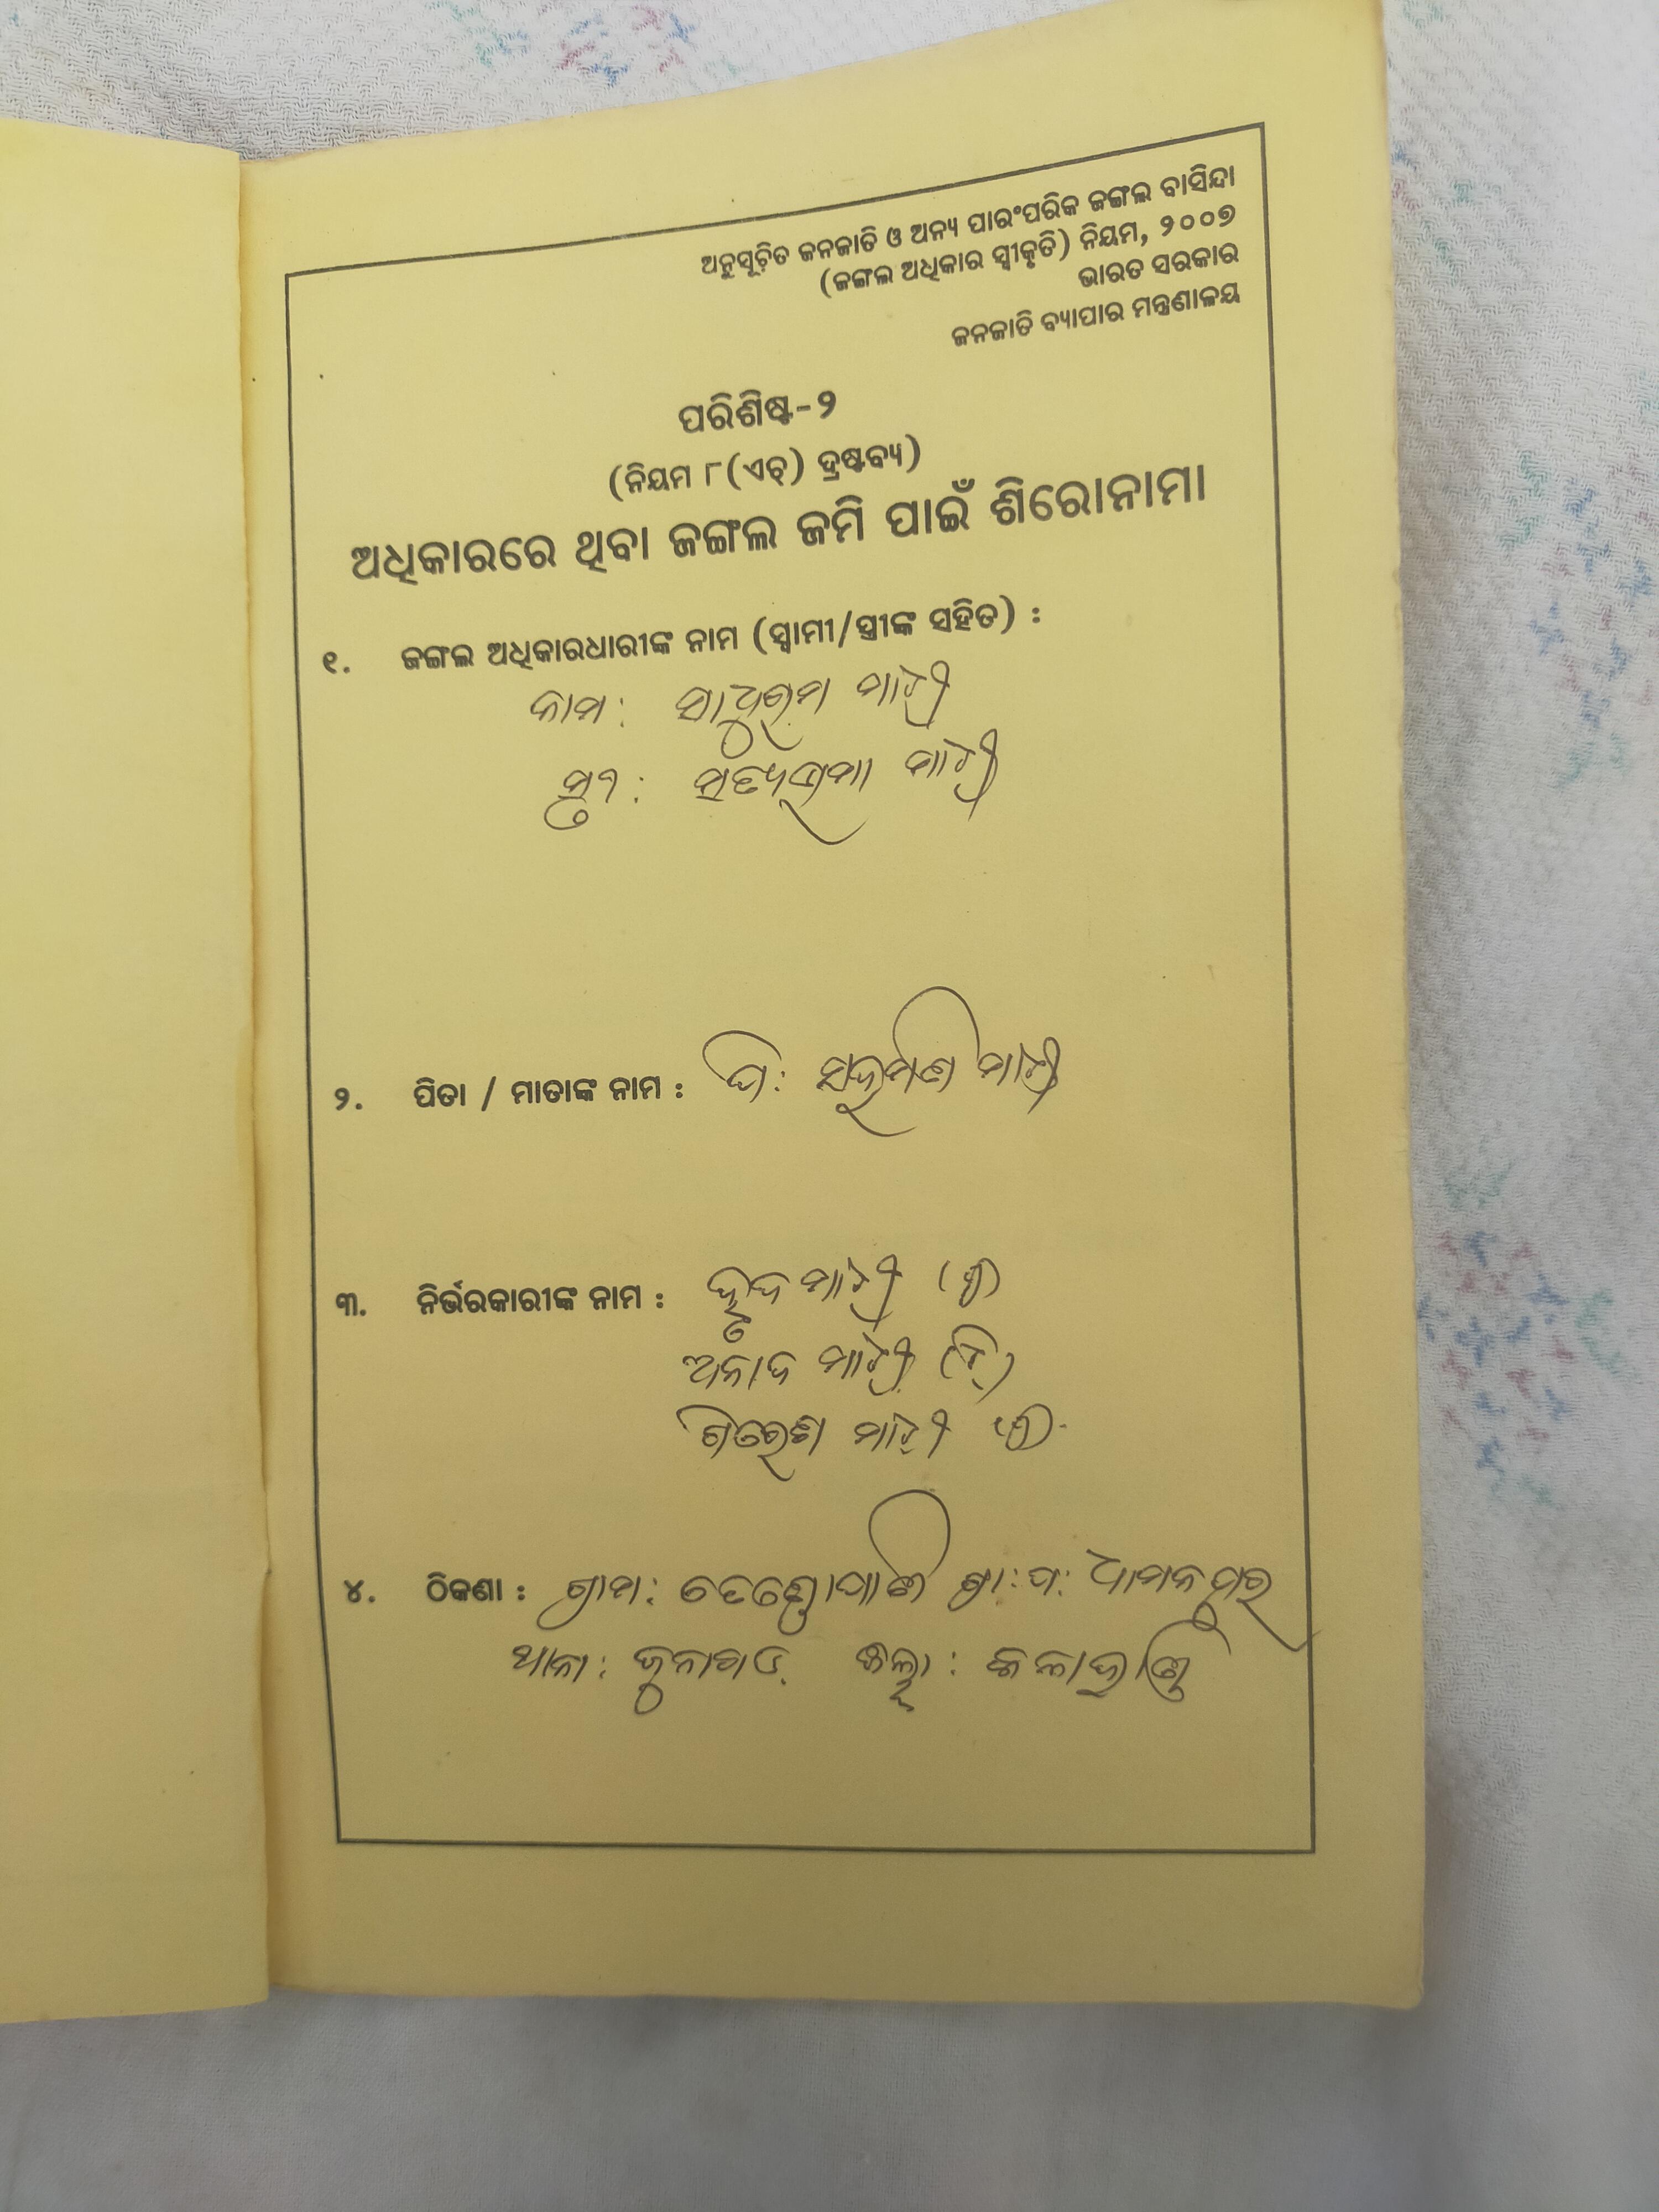 ଅନୁସୂଚିତ ଜନଜାତି ଓ ଅନ୍ୟ ପାରଂପରିକ ଜଙ୍ଗଲ ବାସିନ୍ଦା
(ଜଙ୍ଗଲ ଅଧିକାର ସ୍ୱୀକୃତି) ନିୟମ, ୨୦୦୭
ଭାରତ ସରକାର
ଜନଜାତି ବ୍ୟାପାର ମନ୍ତ୍ରଣାଳୟ
ପରିଶିଷ୍ଟ-୨
(ନିୟମ ୮(ଏଚ୍) ଦ୍ରଷ୍ଟବ୍ୟ)
ଅଧିକାରରେ ଥିବା ଜଙ୍ଗଲ ଜମି ପାଇଁ ଶିରୋନାମା
୧. ଜଙ୍ଗଲ ଅଧିକାରଧାରୀଙ୍କ ନାମ (ସ୍ୱାମୀ/ସ୍ତ୍ରୀଙ୍କ ସହିତ) :
ନାମ: ସାଧୁରାମ ମାଝୀ
ସ୍ତ୍ରୀ: ସତ୍ୟଭାମା ମାଝୀ
୨. ପିତା / ମାତାଙ୍କ ନାମ : ପି: ମାଝୀ
୩. ନିର୍ଭରକାରୀଙ୍କ ନାମ : ମାଝୀ
ମାଝୀ
ଗିରେଶ ମାଝୀ
୪. ଠିକଣା : ଗ୍ରାମ: ଗ୍ରା:ପ: ଧାମନପୁର
ଥାନା: ଜୁନାଗଡ଼ ଜିଲ୍ଲା: କଳାହାଣ୍ଡି